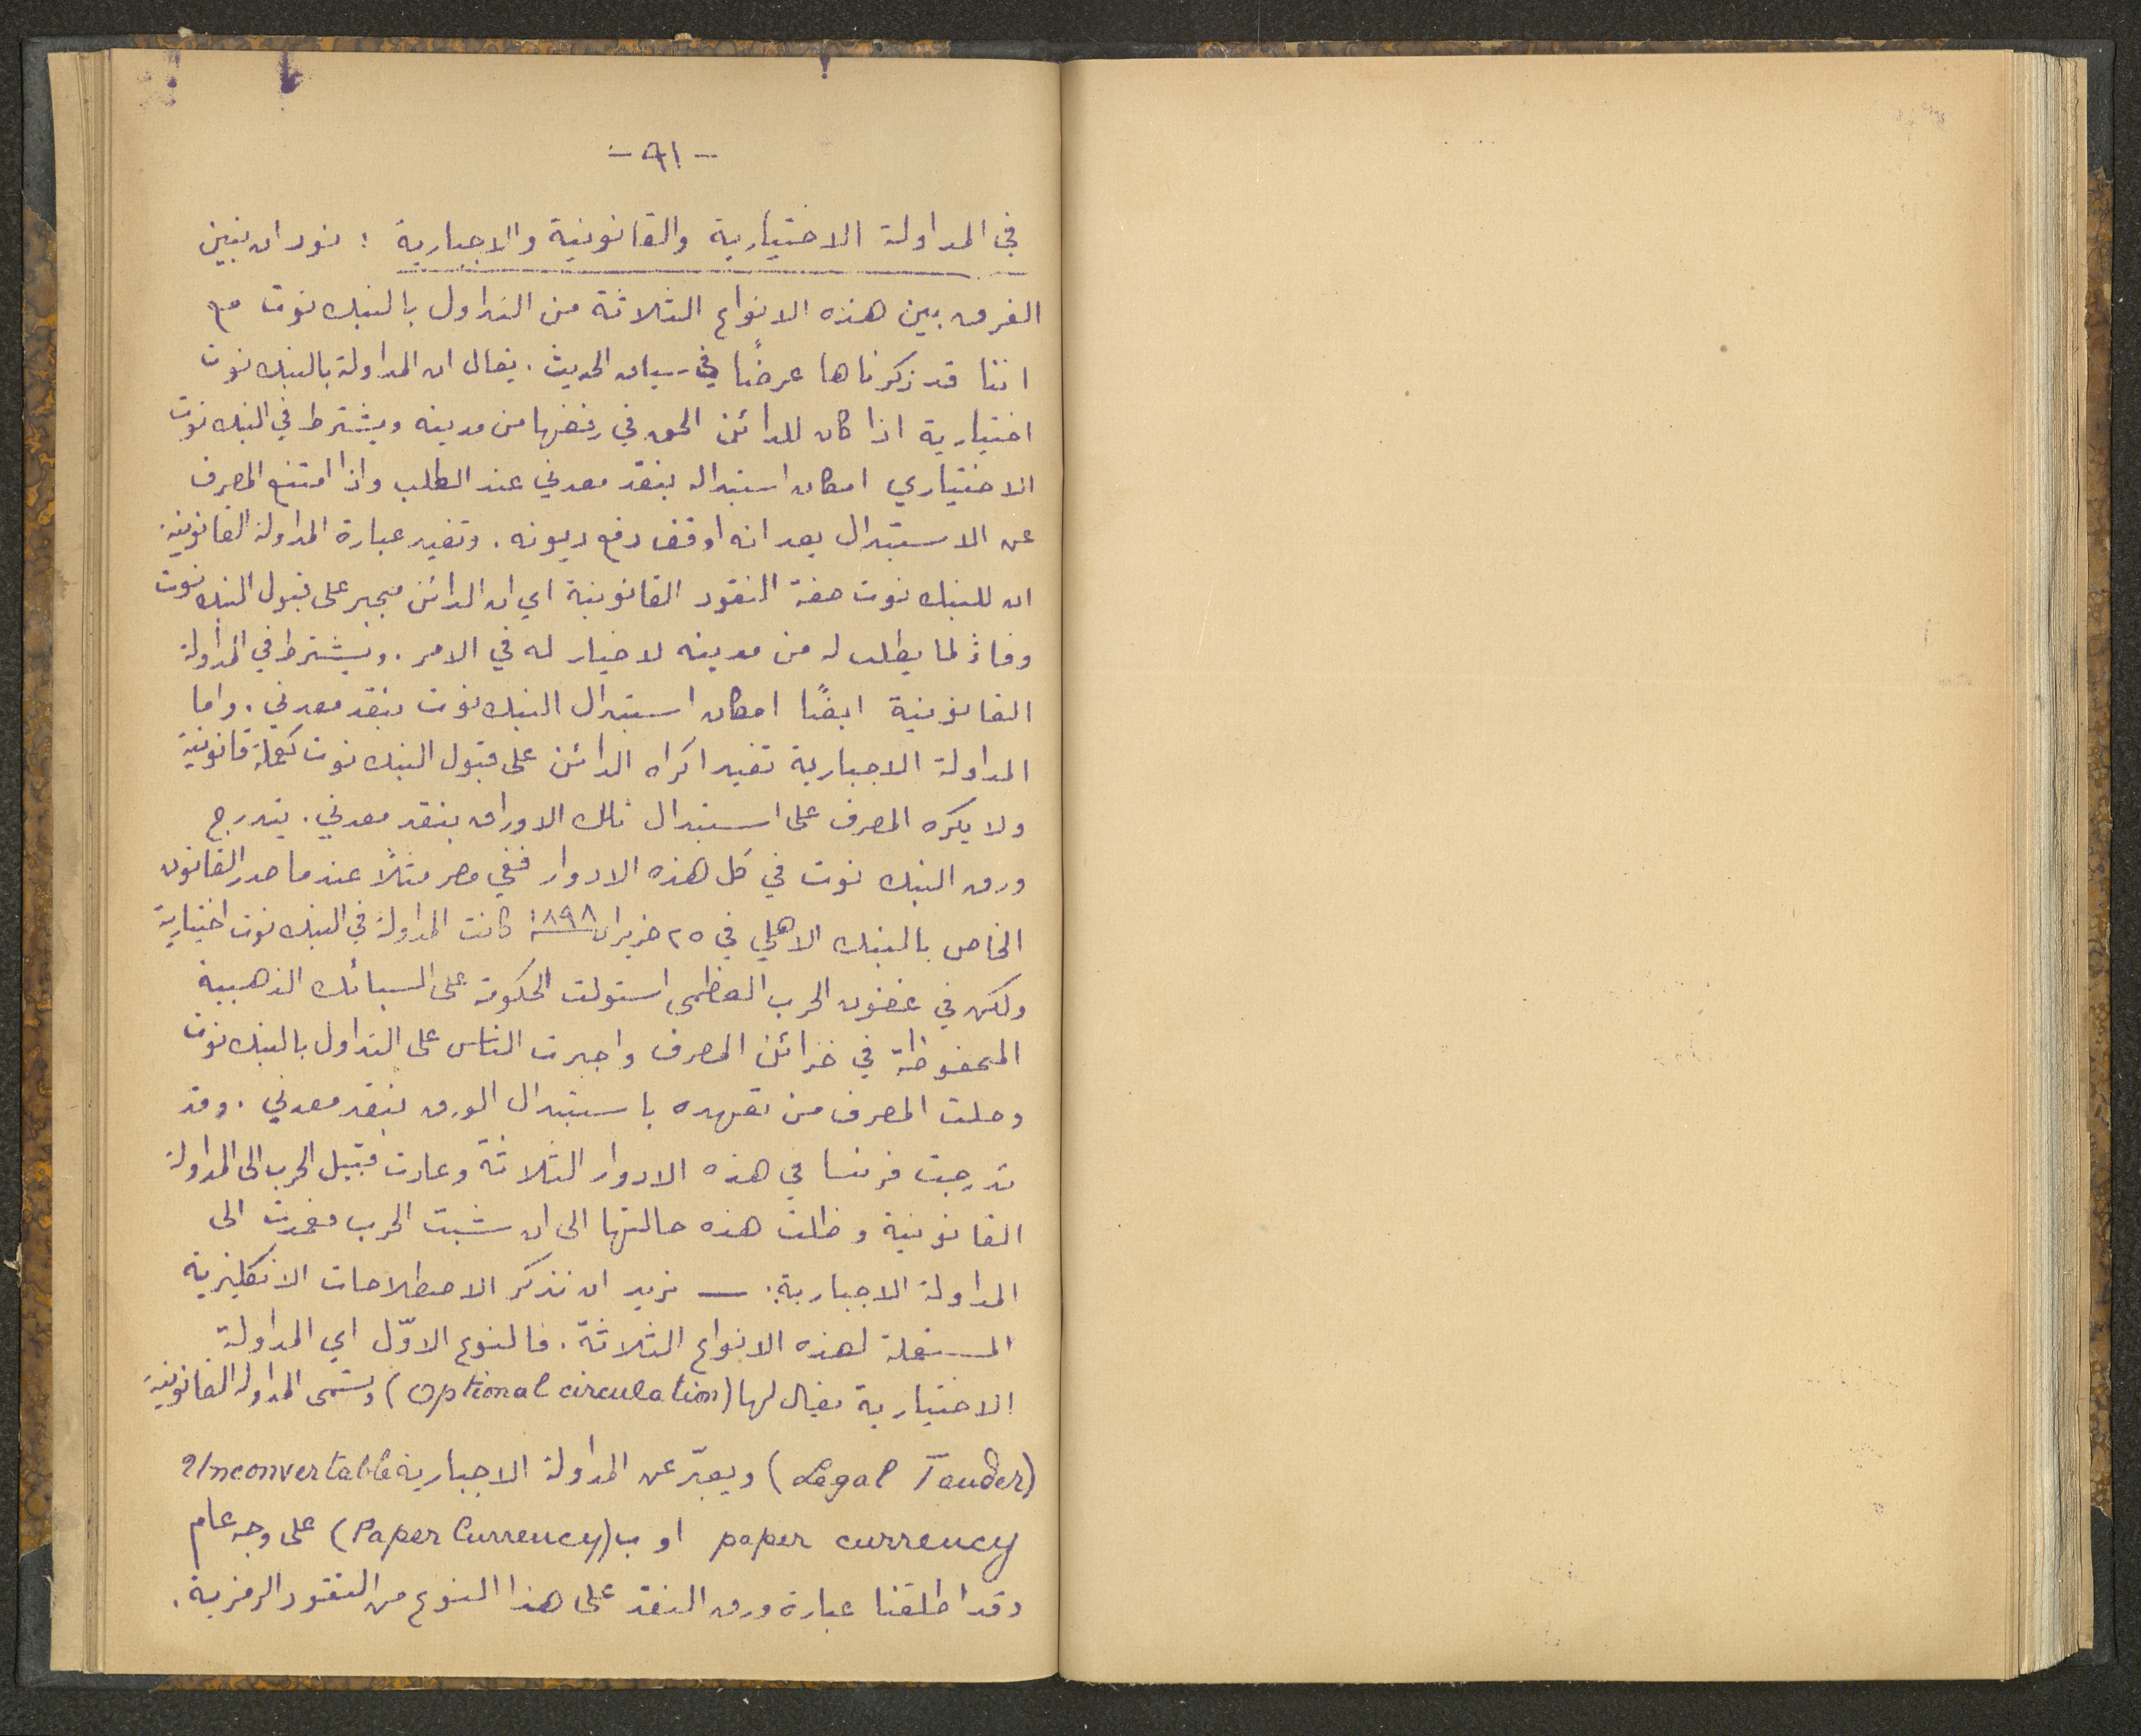 - ٩١ -
في المداولة الاختيارية والقانونية والاجبارية : نود ان نبين
الفرق بين هذه الانواع الثلاثة من التداول بالبنك نوت مع
اننا قد ذكرناها عرضًا في سياق الحديث . يقال ان المداولة بالبنك نوت
اختيارية اذا كان للدائن الحق في رفضها من مدينه ويشترط في البنك نوت
الاختياري امكان استبداله بنقد معدني عند الطلب واذا امتنع المصرف
عن الاستبدال يعد انه اوقف دفع ديونه . وتفيد عبارة المداولة القانونية
ان للبنك نوت صفة النقود القانونية اي ان الدائن مجبر على قبول البنك نوت
وفاءً لما يطلب له من مدينه لا خيار له في الامر . ويشترط في المداولة
القانونية ايضًا امكان استبدال البنك نوت بنقد معدني . واما
المداولة الاجبارية تفيد اكراه الدائن على قبول البنك نوت كعملة قانونية
ولا يكره المصرف على استبدال تلك الاوراق بنقد معدني . يتدرج
ورق البنك نوت في كل هذه الادوار ففي مصر مثلًا عندما صدر القانون
الخاص بالبنك الاهلي في ٢٥ حزيران ١٨٩٨ كانت المداولة في البنك نوت اختيارية
ولكن في غضون الحرب العظمى استولت الحكومة على السبائك الذهبية
المحفوظة في خزائن المصرف واجبرت الناس على التداول بالبنك نوت
وحلت المصرف من تعهده باستبدال الورق بنقد معدني . وقد
تدرجت فرنسا في هذه الادوار الثلاثة وعادت قبيل الحرب الى المداولة
القانونية وظلت هذه حالتها الى ان شبت الحرب فعمدت الى
المداولة الاجبارية . — نريد ان نذكر الاصطلاحات الانكليزية
المستعملة لهذه الانواع الثلاثة . فالنوع الاوّل اي المداولة
الاختيارية يقال لها (Optional circulation) وتسمى المداولة القانونية
(Legal Tender) ويعبّر عن المداولة الاجبارية Unconvertable
paper currency او ب (Paper Currency) على وجه عام
وقد اطلقنا عبارة ورق النقد على هذا النوع من النقود الرمزية .